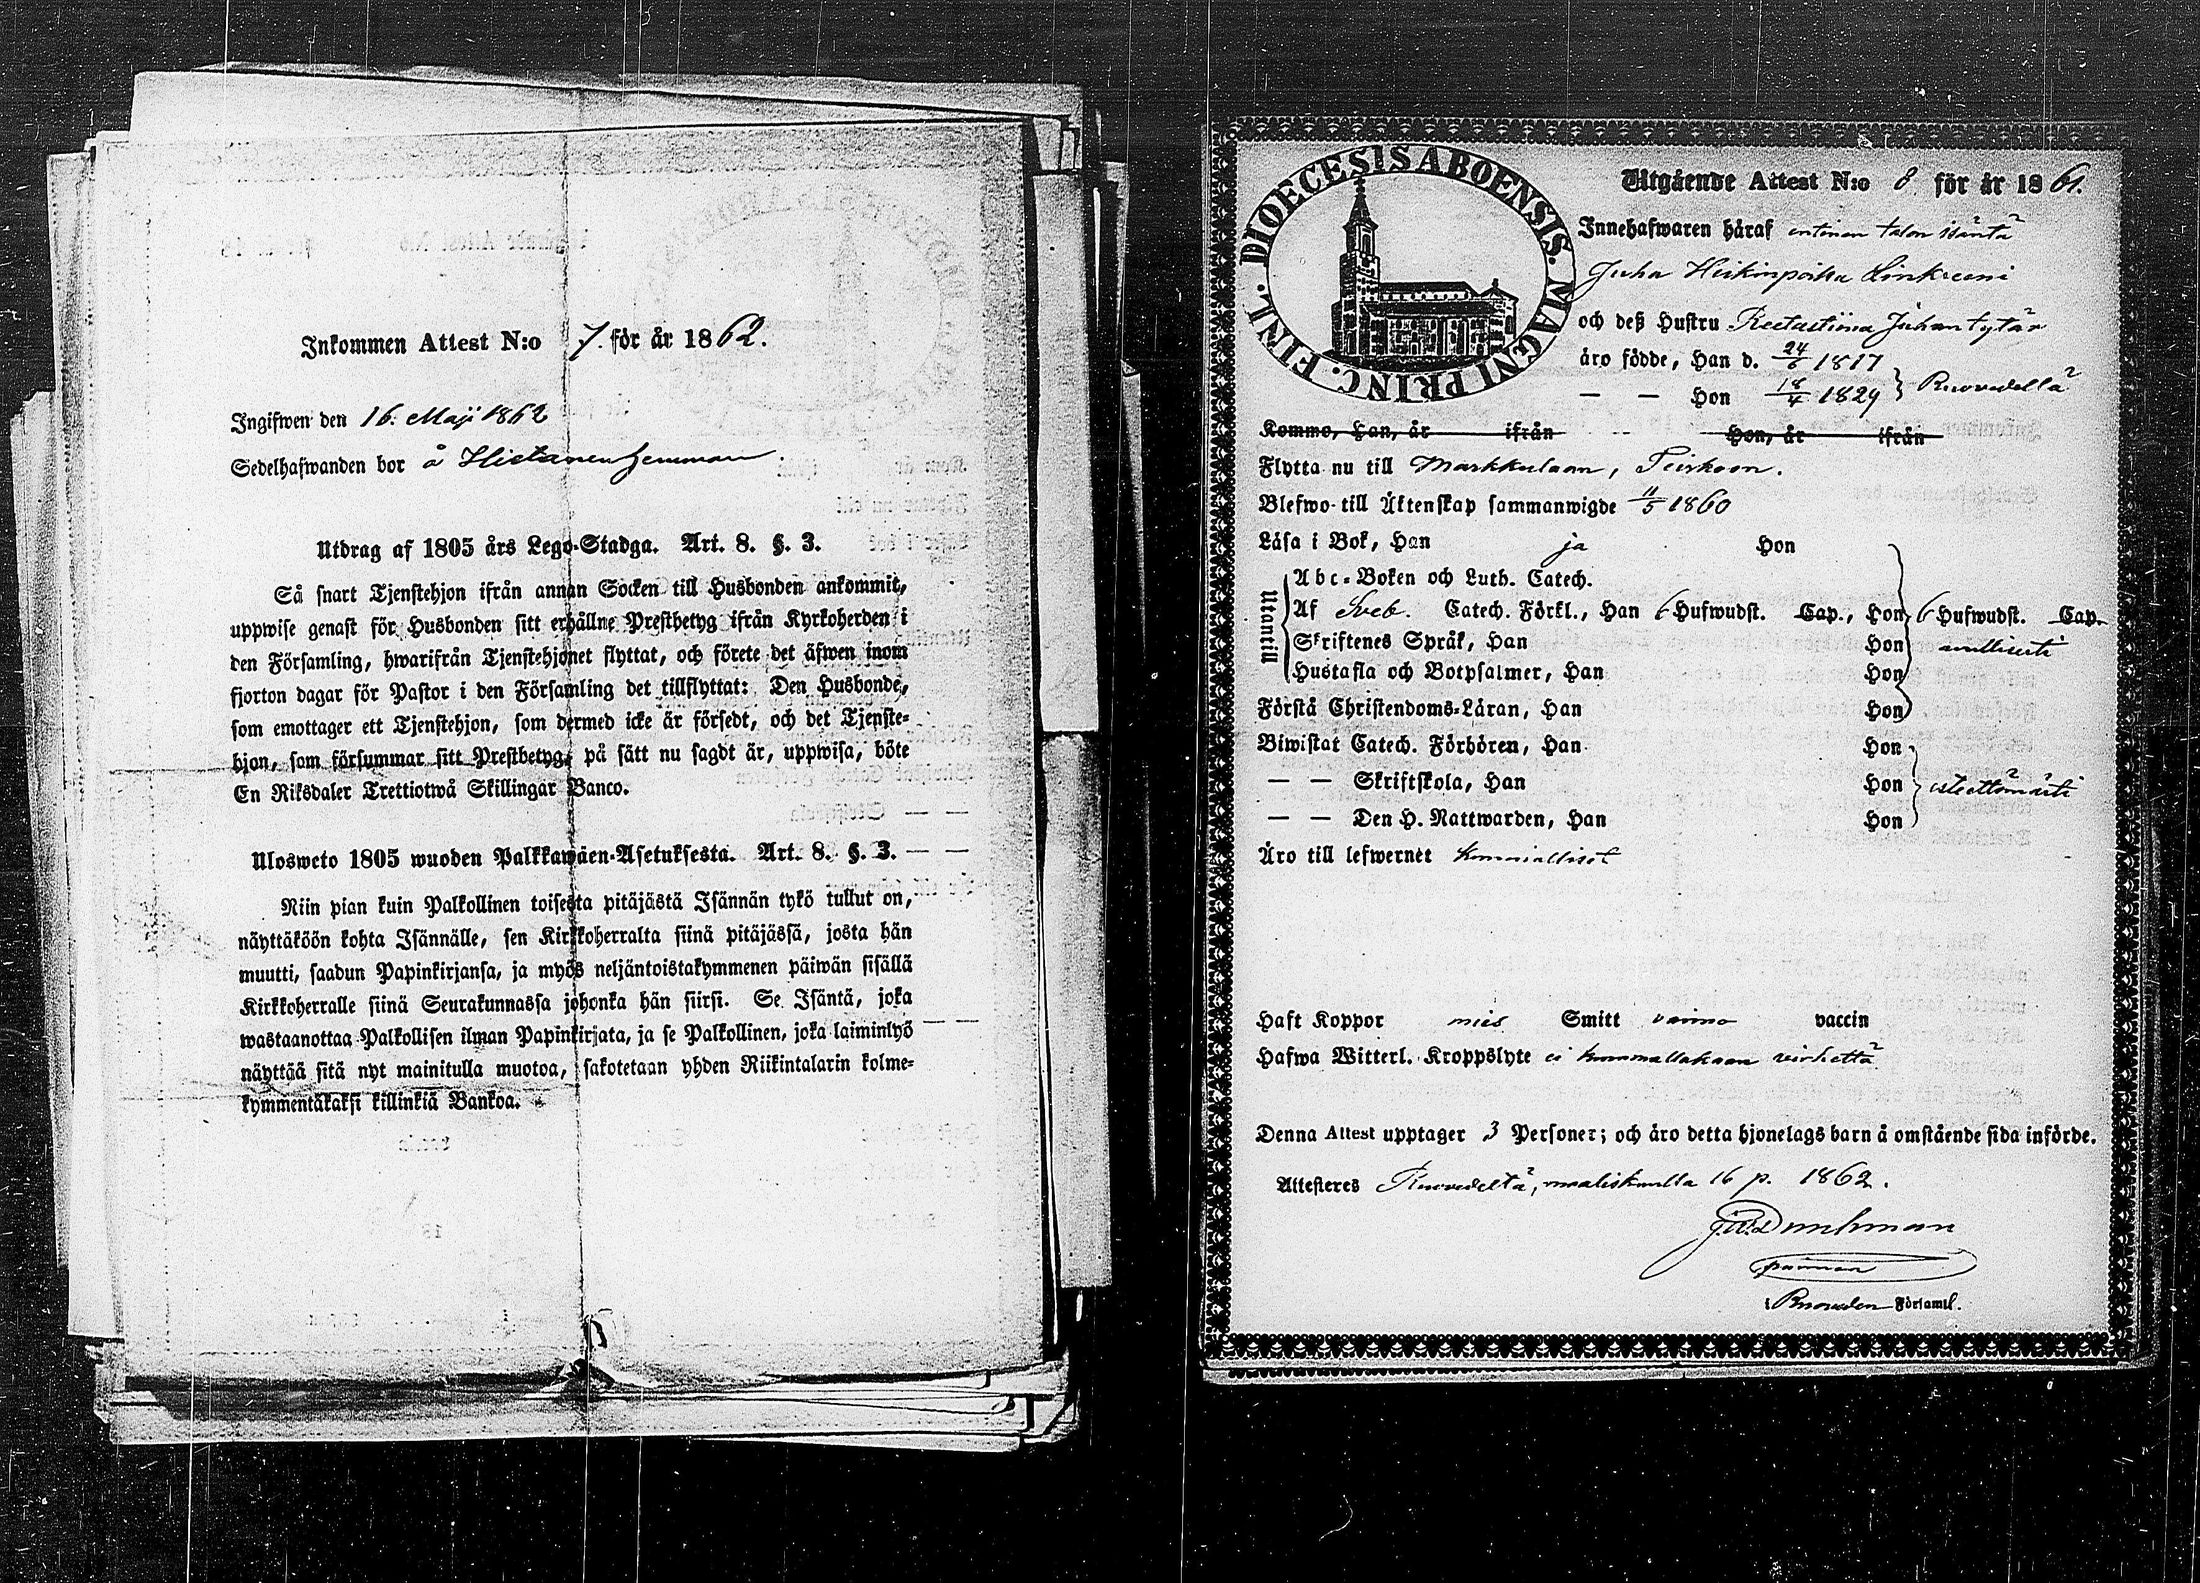 Inkommen Attest N:o 7. för år 1862.
Ingifwen den 16. Maji 1862
Sedelhafwanden bor å Hietanen hemman.
Utdrag af 1805 års Lego-Stadga. Art. 8. §. 3.
Så snart Tjenstehjon ifrån annan Socken till Husbonden ankommit,
uppwise genast för Husbonden sitt erhållne Prestbetyg ifrån Kyrkoherden i
den Församling, hwarifrån Tjenstehjonet flyttat, och förete det äfwen inom
fjorton dagar för Pastor i den Församling det tillflyttat: Den Husbonde,
som emottager ett Tjenstehjon, som dermed icke är försedt, och det Tjenste-
hjon, som försummar sitt Prestbetyg, på sätt nu sagdt är, uppwisa, böte
En Riksdaler Trettiotwå Skillingar Banco.
Ulosweto 1805 wuoden Palkkawäen-Asetuksesta. Art. 8. §. 3.
Niin pian kuin Palkollinen toisesta pitäjästä Isännän tykö tullut on,
näyttäköön kohta Isännälle, sen Kirkkoherralta siinä pitäjässä, josta hän
muutti, saadun Papinkirjansa, ja myös neljäntoistakymmenen päiwän sisällä
Kirkkoherralle siinä Seurakunnassa johonka hän siirsi. Se Isäntä, joka
wastaanottaa Palkollisen ilman Papinkirjata, ja se Palkollinen, joka laiminlyö
näyttää sitä nyt mainitulla muotoa, sakotetaan yhden Riikintalarin kolme-
kymmentäkaksi killinkiä Bankoa.
DIOECESIS ABOENSIS. MAGNI PRINC. FINL.
Utgående Attest N:o 8 för år 1861.
Innehafwaren häraf entinen talon isäntä
Juha Heikinpoika Linkreeni
och deß Hustru Reetastiina Juhantytär
äro födde, Han d. 24/6 1817
— — Hon 18/4 1829 } Ruovedellä
Kommo, Han, år ifrån Hon, år ifrån
Flytta nu till Markkulaan, Teiskoon.
Blefwo till Äktenskap sammanwigde 11/5 1860
Läsa i Bok, Han ja Hon
Utantill
Abc-Boken och Luth. Catech.
Af Sveb. Catech. Förkl., Han 6 Hufwudst. Cap., Hon 6 Hufwudst. Cap.
Skriftenes Språk, Han Hon
Hustafla och Botpsalmer, Han Hon
Förstå Christendoms-Läran, Han Hon
Biwistat Catech. Förhören, Han Hon
— — Skriftskola, Han Hon esteettömästi
— — Den H. Nattwarden, Han Hon
Äro till lefwernet kunnialliset
Haft Koppor mies Smitt vaimo vaccin
Hafwa Witterl. Kroppslyte ei kummallakaan virhettä
Denna Attest upptager 3 Personer; och äro detta hjonelags barn å omstående sida införde.
Attesteres Ruovedeltä, maaliskuulla 16 p. 1862.
i Ruoveden Församl.